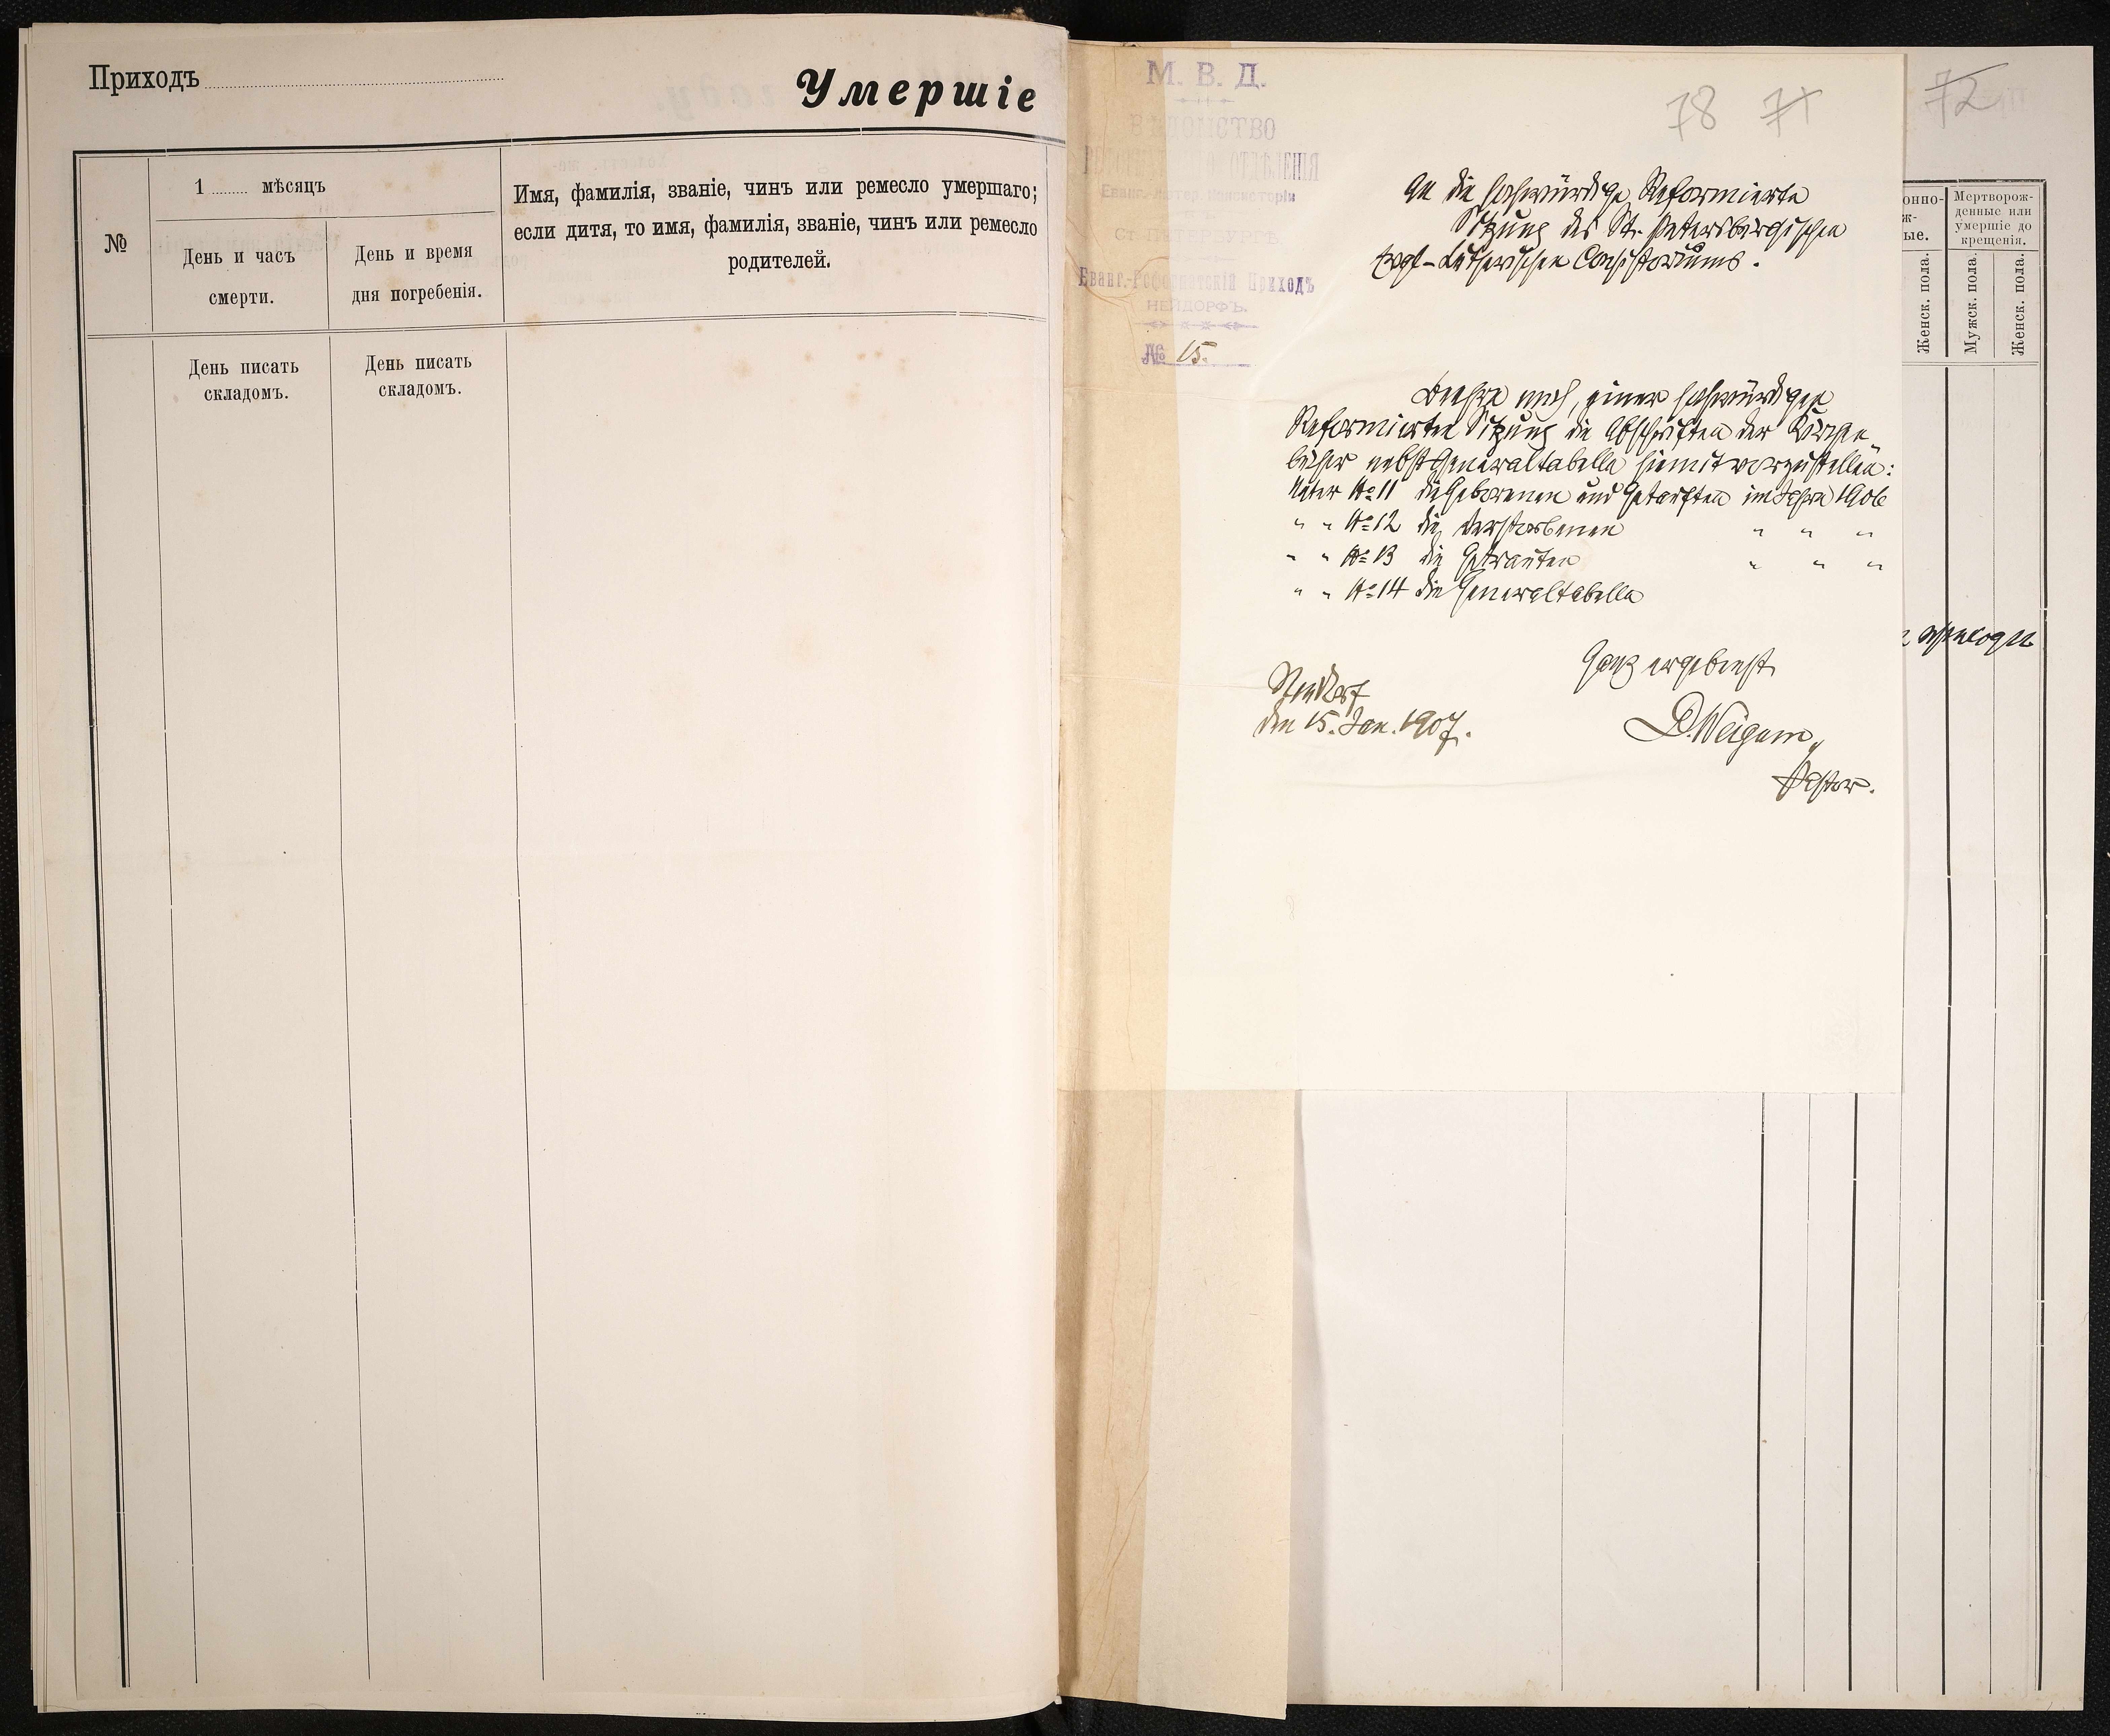 Приходъ
Умершіе
№
1 ........ мѣсяцъ
День и часъ
смерти.
День и время
дня погребенія.
Имя, фамилія, званіе, чинъ или ремесло умершаго;
если дитя, то имя, фамилія, званіе, чинъ или ремесло
родителей.
День писать
складомъ.
День писать
складомъ.
М. В. Д.
ВѢДОМСТВО
РЕФОРМАТСКАГО ОТДѢЛЕНІЯ
Еванг.-Лютер. Консисторіи
Ст. ПЕТЕРБУРГЪ.
Еванг.-Реформатскій Приходъ
НЕЙДОРФЪ.
№ 15.
78 71
An die hochwürdige Reformierte
Sitzung des St. Petersburgischen
Evgl-Lutherischen Consistoriums.
Beehre mich, einer hochwürdigen
Reformierten Sitzung die Abschriften der Kirchen-
bücher nebst Generaltabelle hiemit vorzustellen:
Unter № 11 die Geborenen und Getauften im Jahre 1906
" " № 12 die Verstorbenen " " "
" " № 13 die Getrauten " " "
" " № 14 die Generaltabelle
Ganz ergebenst
Neudorf
den 15. Jan. 1907.
D. Weigum,
Pastor.
72
онно-
ж-
ые.
Женск. пола.
Мертворож-
денные или
умершіе до
крещенія.
Мужск. пола.
Женск. пола.